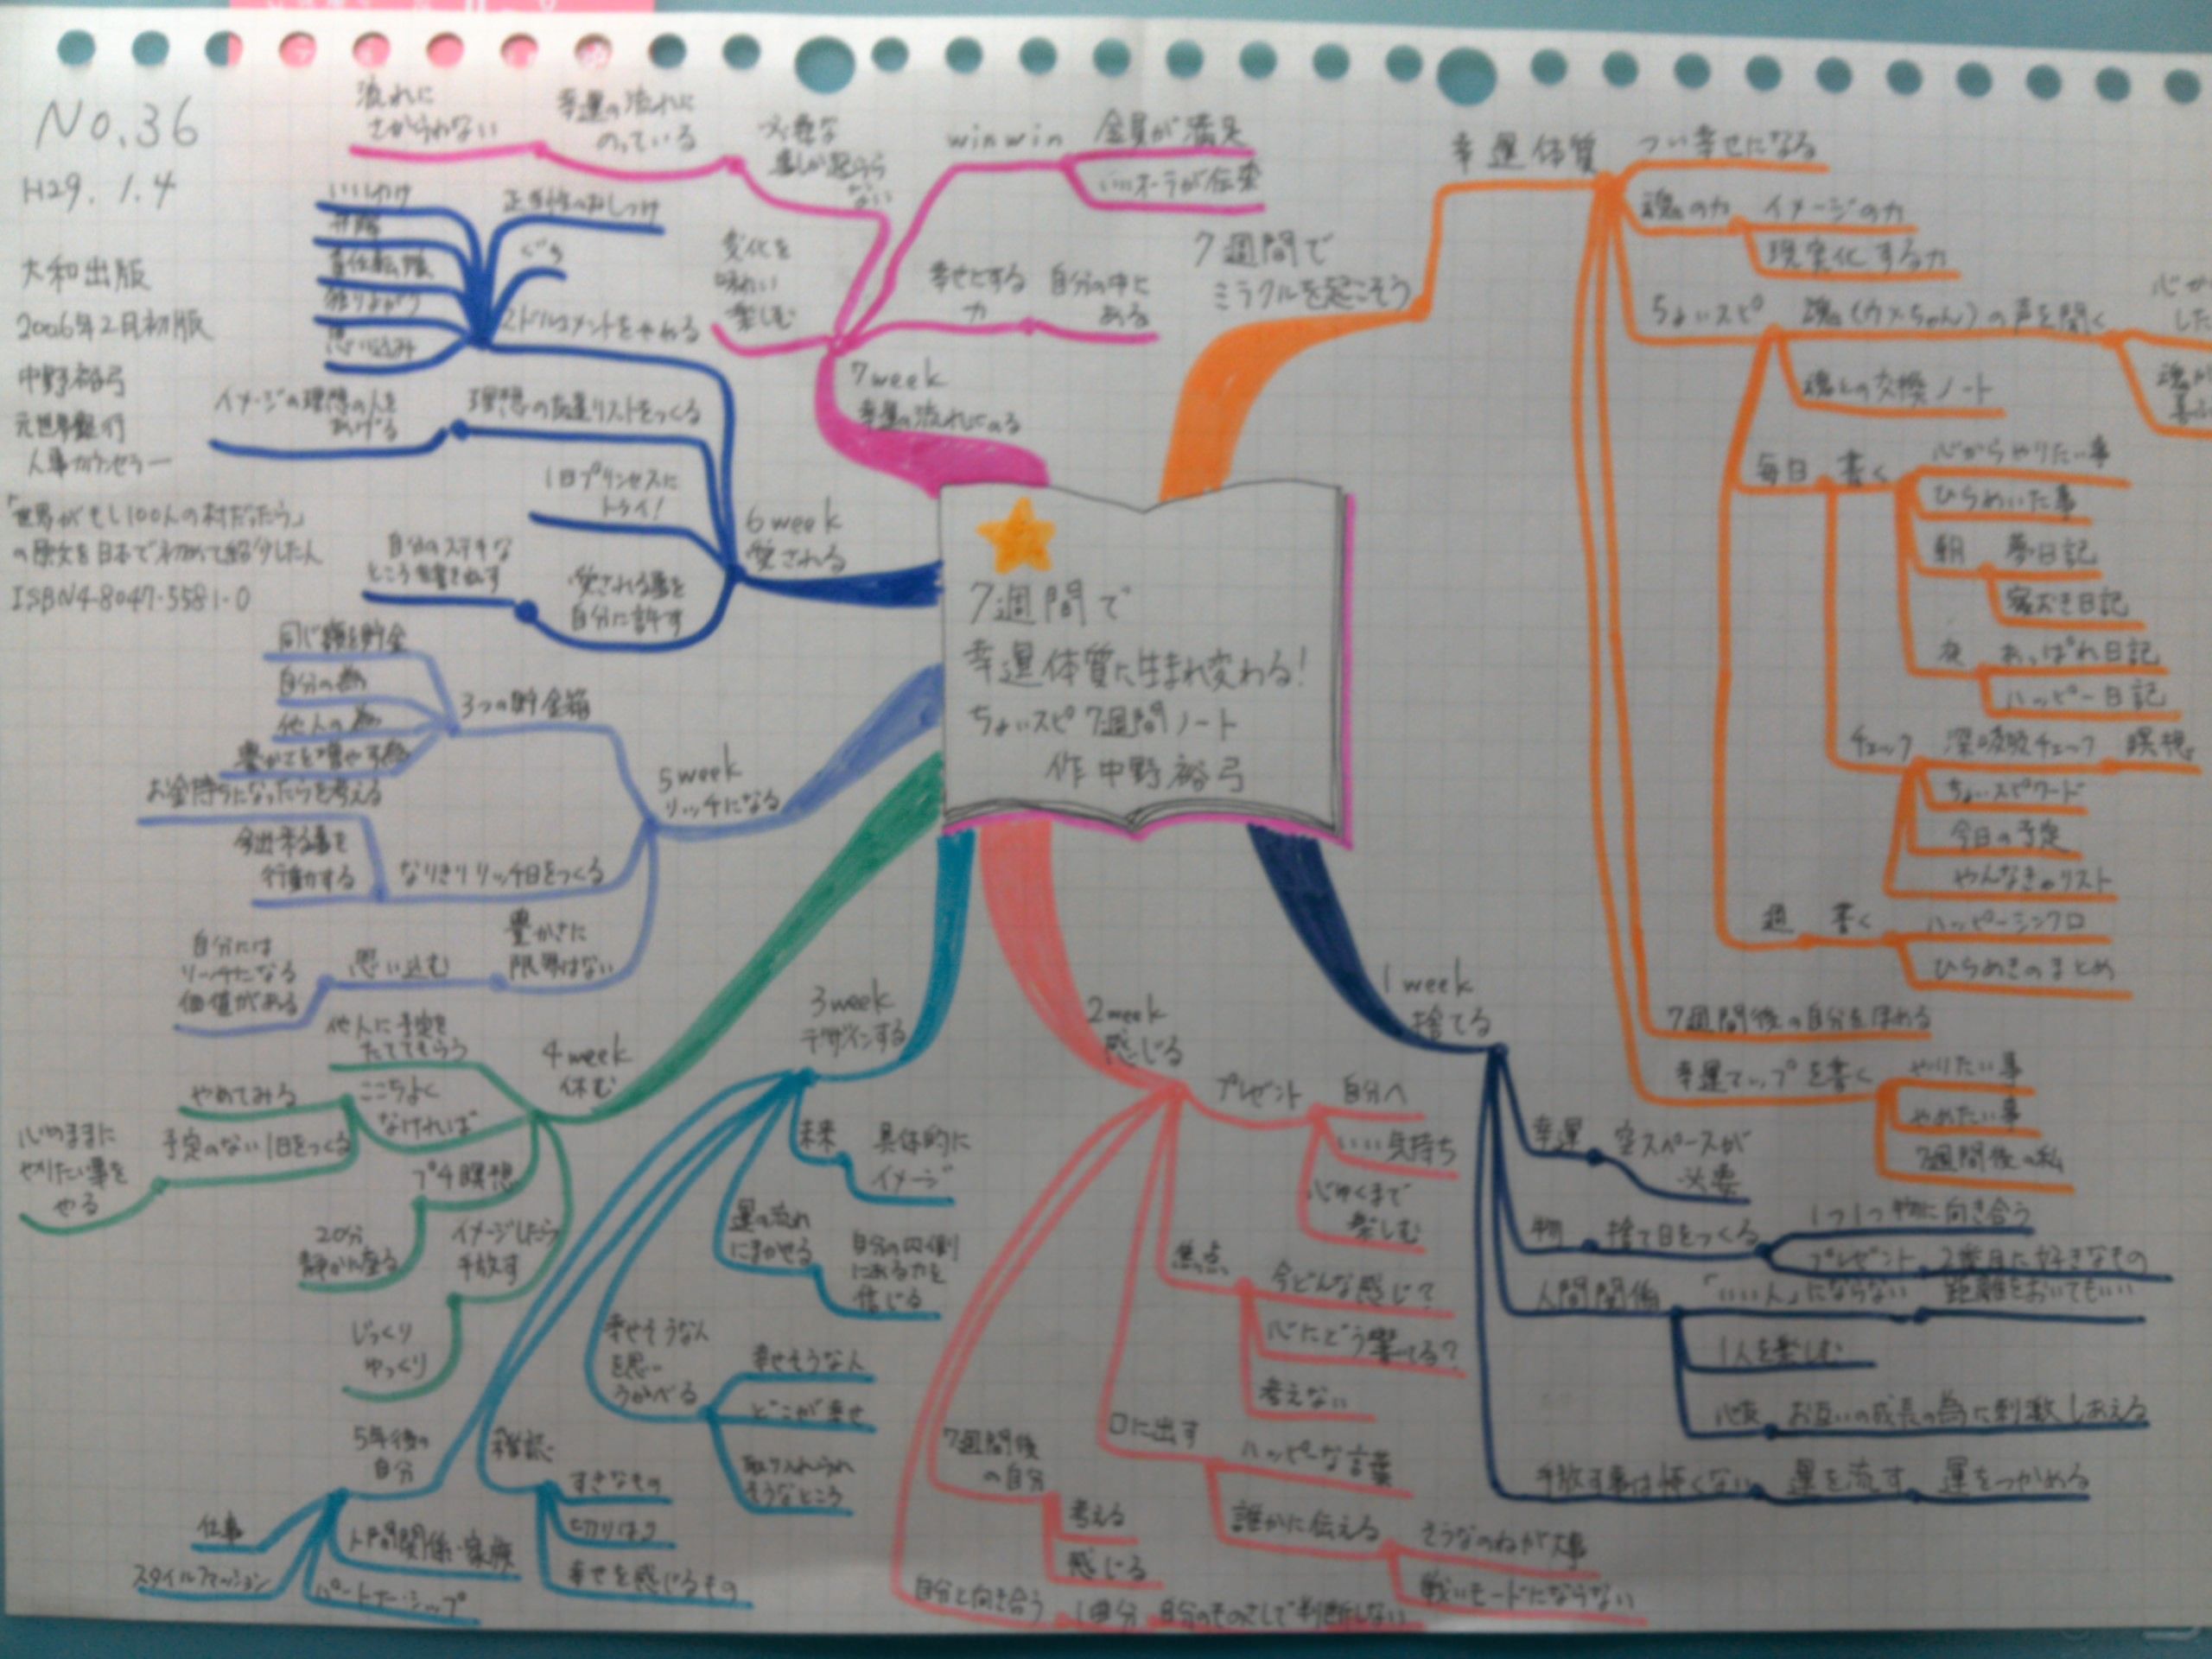 No.36
H29.1.4
大和出版
2006年2月初版
中野裕弓
元世界銀行
人事カウンセラー
「世界がもし100人の村だったら」
の原文を日本で初めて紹介した人
ISBN4-8047-5581-0
7週間で
幸運体質に生まれ変わる!
ちょいスピ 7週間ノート
作 中野裕弓
7週間で
ミラクルを起こそう
幸運体質
つい幸せになる
魂の力
イメージの力
現実化する力
ちょいスピ
魂(カメちゃん)の声を聞く
魂との交換ノート
毎日
書く
心からやりたい事
ひらめいた事
朝
夢日記
寝おき日記
夜
あっぱれ日記
ハッピー日記
チェック
深呼吸チェック
瞑想
ちょいスピワード
今日の予定
やんなきゃリスト
週
書く
ハッピーシンクロ
ひらめきのまとめ
7週間後の自分をほめる
幸運マップを書く
やりたい事
やめたい事
7週間後の私
1week
捨てる
幸運
空スペースが
必要
物
捨て日をつくる
1つ1つ物に向き合う
プレゼント
2番目に好きなもの
人間関係
「いい人」にならない
距離をおいてもいい
1人を楽しむ
お互いの成長の為に刺激しあえる
手放す事は怖くない
運を流す
運をつかめる
2week
感じる
プレゼント
自分へ
いい気持ち
心ゆくまで
楽しむ
焦点
今どんな感じ?
心にどう響いてる?
考えない
口に出す
ハッピーな言葉
誰かに伝える
そうなのねが大事
戦いモードにならない
7週間後
の自分
考える
感じる
自分と向き合う
1日1分
自分のものさしで判断しない
3week
デザインする
未来
具体的に
イメージ
運の流れ
にまかせる
自分の内側
にある力を
信じる
幸せそうな人
を思い
うかべる
幸せそうな人
どこが幸せ
取り入れられ
そうなところ
雑誌
すきなもの
切りはり
幸せを感じるもの
5年後の
自分
仕事
スタイルファッション
人間関係・家族
パートナーシップ
4week
休む
他人に予定を
たててもらう
ここちよく
なければ
やめてみる
予定のない1日をつくる
心のままに
やりたい事を
やる
プチ瞑想
20分
静かに座る
イメージしたら
手放す
じっくり
ゆっくり
5week
リッチになる
3つの貯金箱
同じ額を貯金
自分の為
他人の為
豊かさを増やす為
なりきりリッチ日をつくる
お金持ちになったらを考える
今出来る事を
行動する
豊かさに
限界はない
思い込む
自分には
リッチになる
価値がある
6week
愛される
2ドルコメントをやめる
いいわけ
弁解
責任転嫁
独りよがり
思い込み
正当性のおしつけ
ぐち
理想の友達リストをつくる
イメージの理想の人を
あげる
1日プリンセスに
トライ!
愛される事を
自分に許す
自分のステキな
ところを書き出す
7week
幸運の流れにのる
変化を
味わい
楽しむ
必要な
事しか起こら
ない
幸運の流れに
のっている
流れに
さからわない
winwin
全員が満足
いいオーラが伝染
幸せにする
力
自分の中に
ある